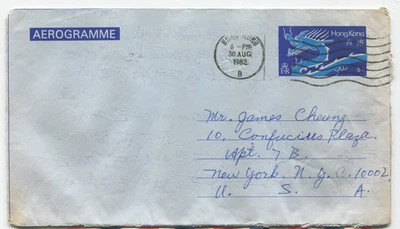 AEROGRAMME
HONG KONG
6 - PM
30 AUG
1982
B
Hong Kong
香港
E II R
Mr. James Cheung
10, Confucius Plaza,
Apt. 7 B.
New York. N. Y. C. 10002.
U. S. A.